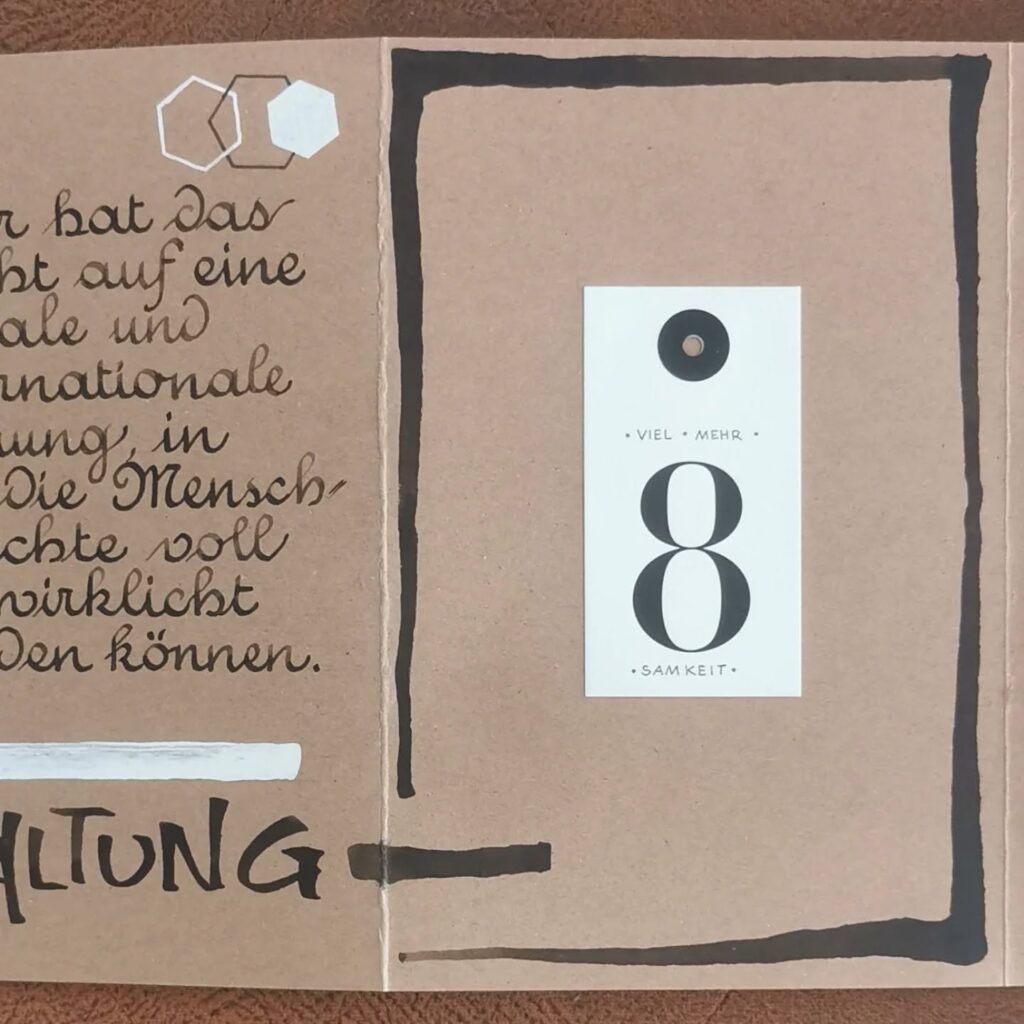 r hat das
ht auf eine
ale und
rnationale
nung, in
die Mensch-
chte voll
wirklicht
den können.
ALTUNG
• VIEL • MEHR •
8
• SAMKEIT •